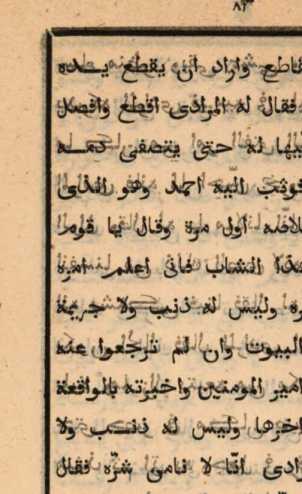 ٨٣
قاطع واراد ان يقطع يده
فقال له المرادى اقطع وافصل
بها له حتى يتصفى دمه
فوثب اليه احمد وهو الذى
اول مرة وقال يا قوم
هذا الشاب فانى اعلم امره
وليس له ذنب ولا جريمة
البيوت وان لم ترجعوا عنه
امير المومنين واخبرته بالواقعة
اخرها وليس له ذنب ولا
ادى انّا لا نامن شرّه فقال